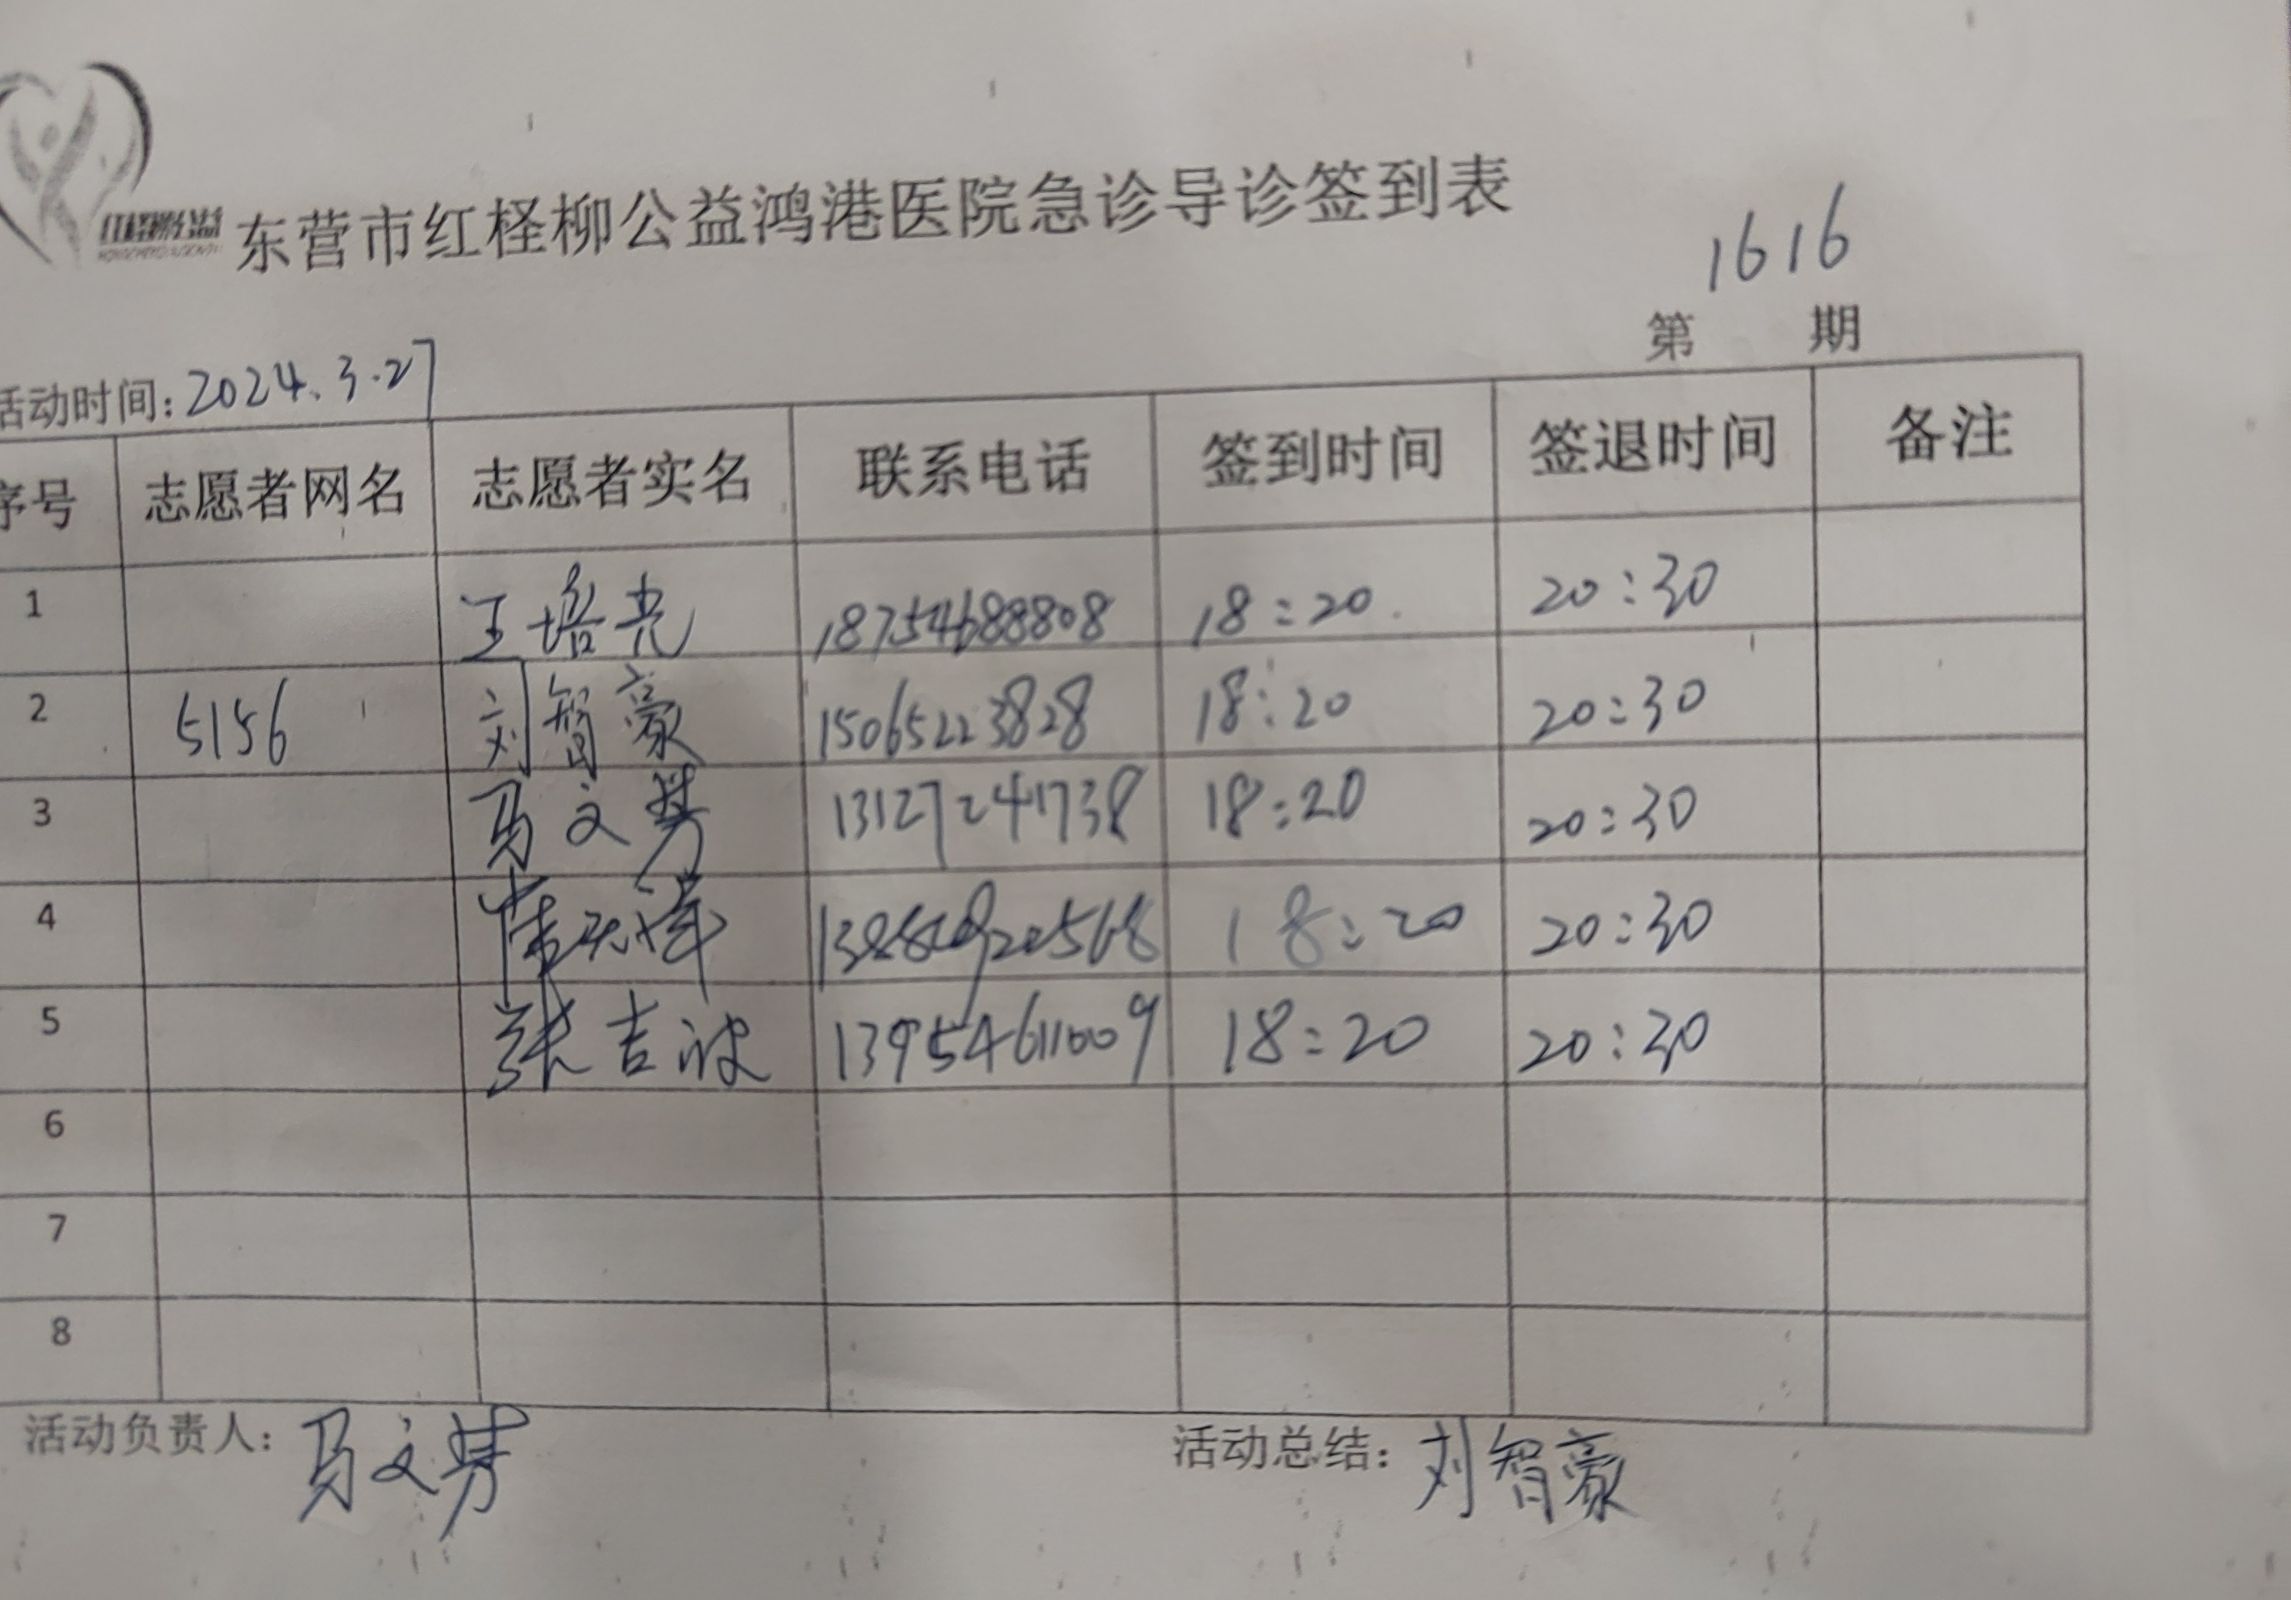 东营市红柽柳公益鸿港医院急诊导诊签到表
1616
第 期
活动时间:2024.3.27
序号 志愿者网名 志愿者实名 联系电话 签到时间 签退时间 备注
1 王培亮 18754688808 18:20 20:30
2 5156 刘智豪 15065223828 18:20 20:30
3 马文梦 13127241738 18:20 20:30
4 18:20 20:30
5 张吉波 13954611009 18:20 20:30
6
7
8
活动负责人: 马文梦 活动总结: 刘智豪